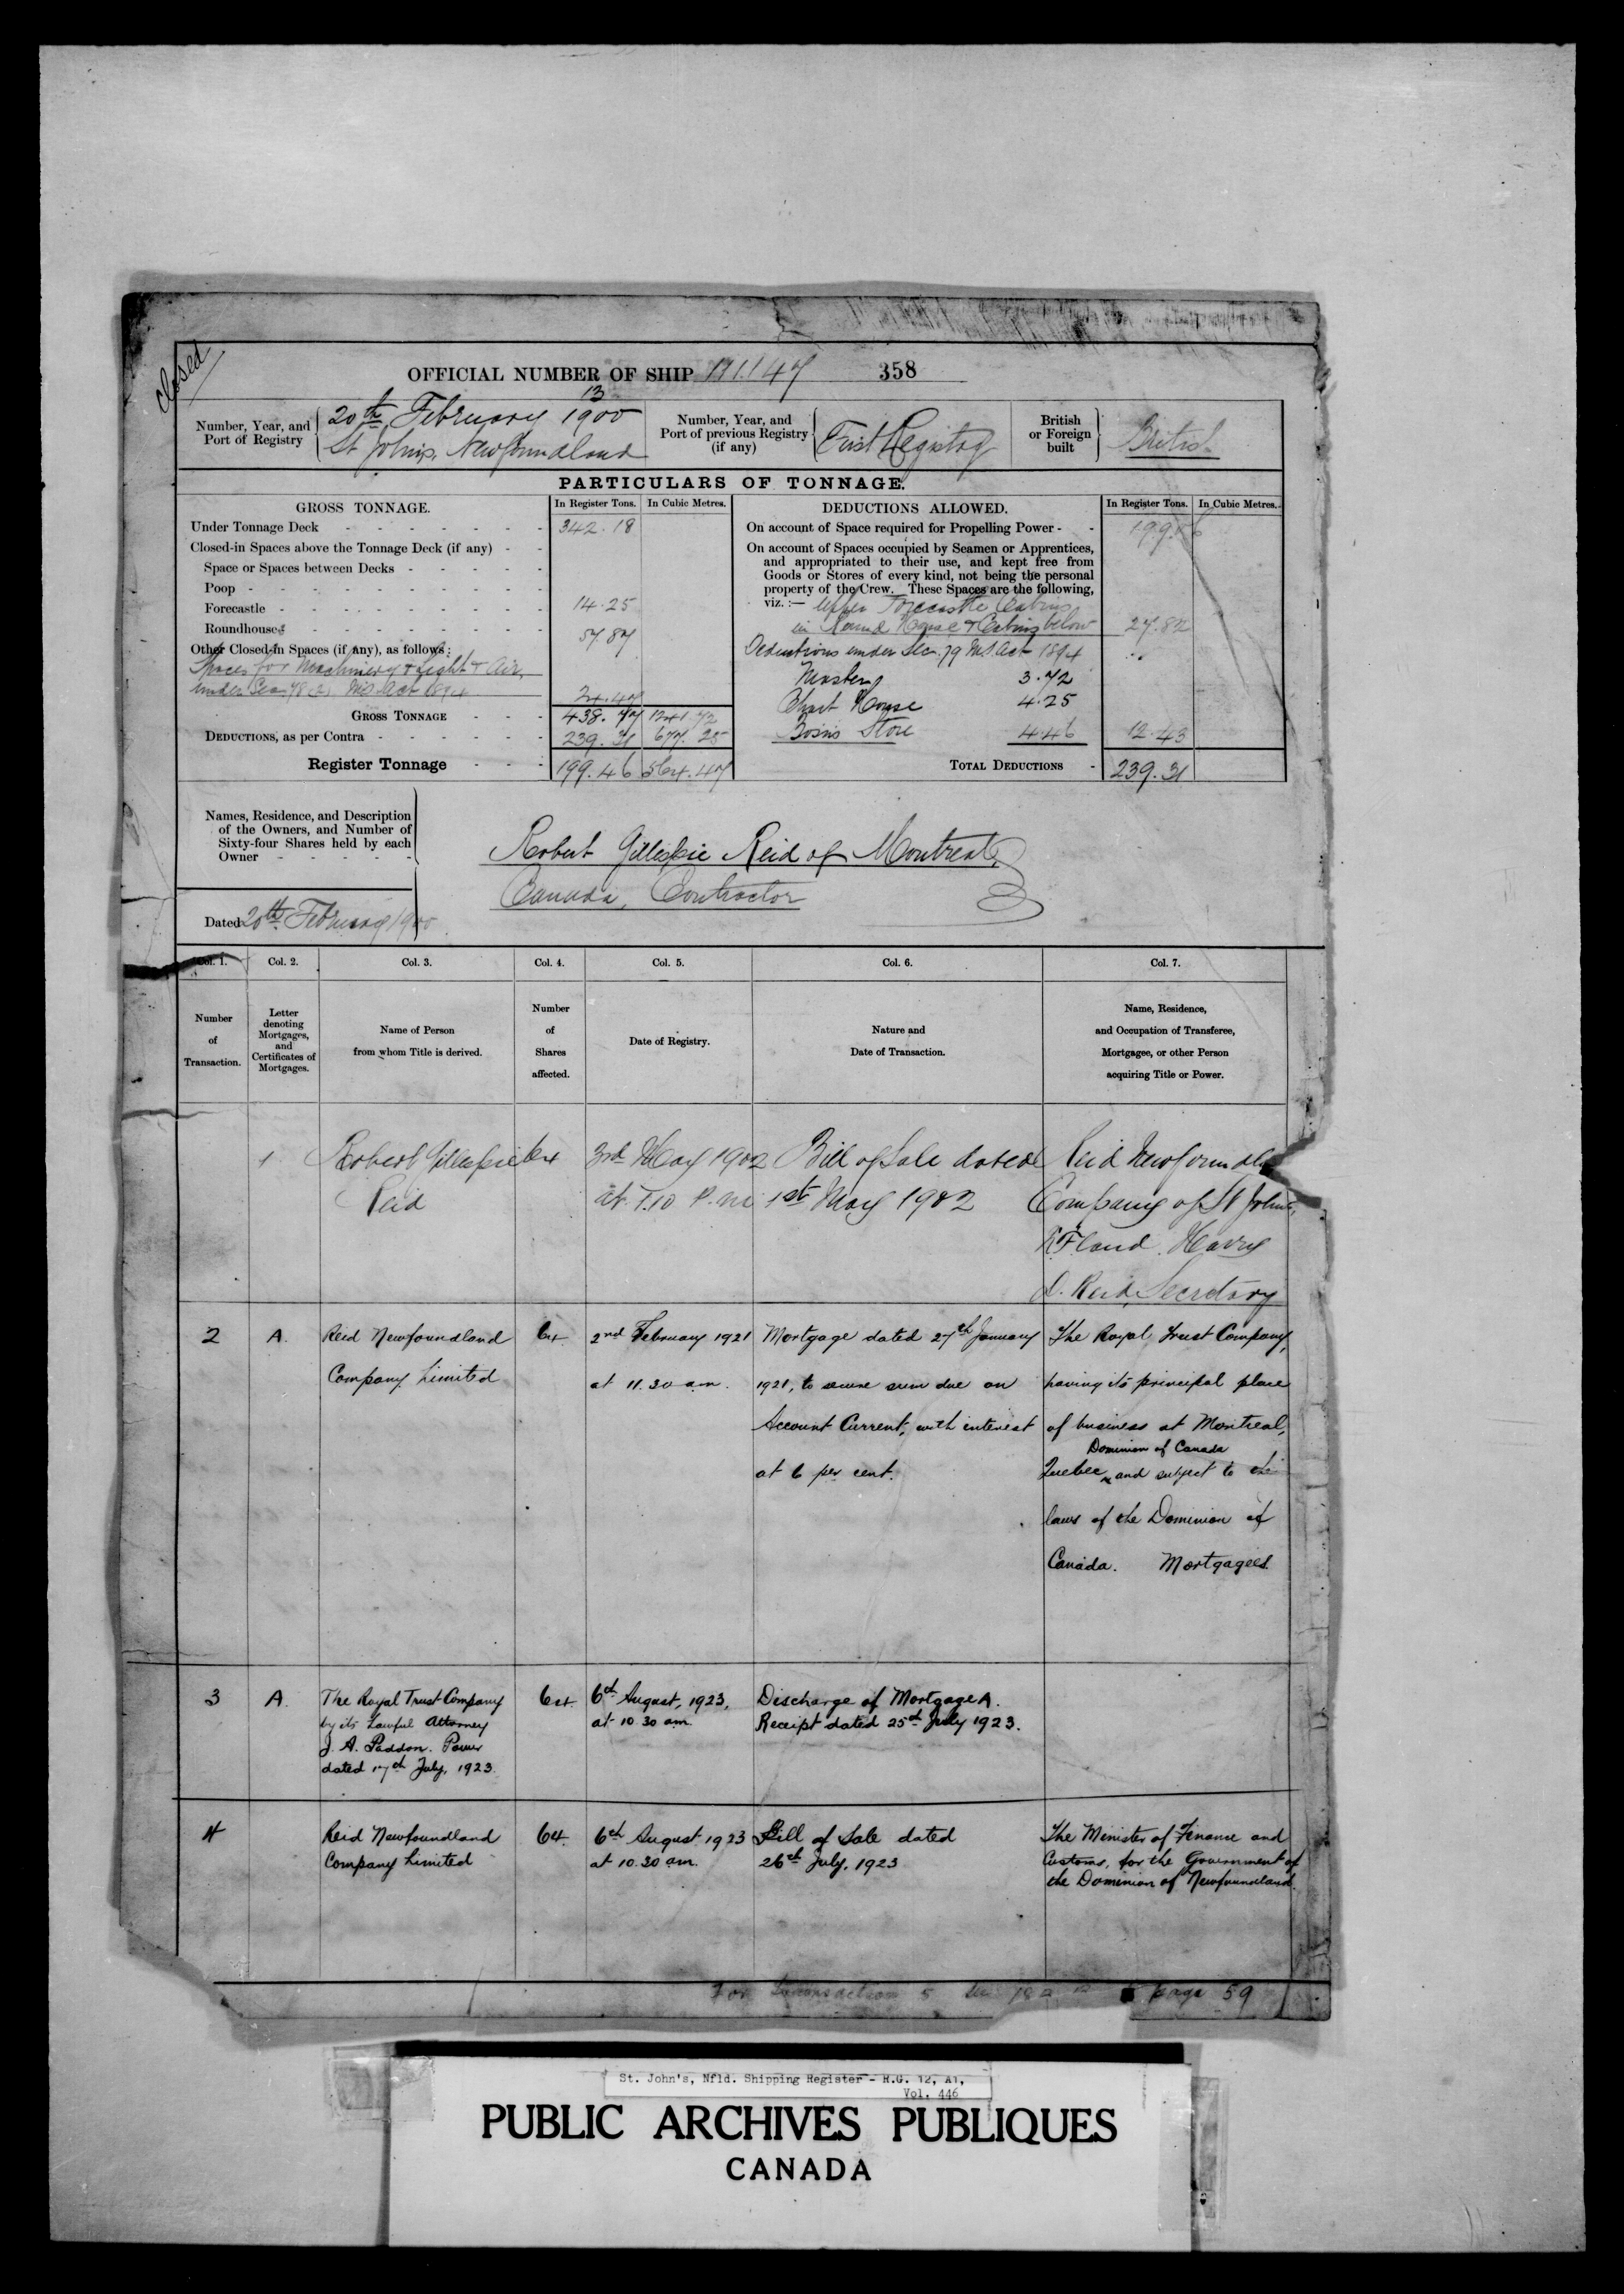 Closed
OFFICIAL NUMBER OF SHIP 111147 358
13
Number, Year, and Port of Registry
20th February 1900
St John's, Newfoundland
Number, Year, and Port of previous Registry (if any)
First Registry
British or Foreign built
British
PARTICULARS OF TONNAGE.
GROSS TONNAGE. In Register Tons. In Cubic Metres.
Under Tonnage Deck 342.18
Closed-in Spaces above the Tonnage Deck (if any)
Space or Spaces between Decks
Poop
Forecastle 14.25
Roundhouse 57.87
Other Closed-in Spaces (if any), as follows:
Spaces for Machinery & Light & Air,
under Sec. 78(2) MS Act 1894 24.47
GROSS TONNAGE 438.77 1241.72
DEDUCTIONS, as per Contra 239.31 677.25
Register Tonnage 199.46 564.47
DEDUCTIONS ALLOWED. In Register Tons. In Cubic Metres.
On account of Space required for Propelling Power 199.06
On account of Spaces occupied by Seamen or Apprentices,
and appropriated to their use, and kept free from
Goods or Stores of every kind, not being the personal
property of the Crew. These Spaces are the following,
viz.:— Upper Forecastle Cabins
in Round House & Cabins below 27.82
Deductions under Sec. 79 MS Act 1894
Master 3.72
Chart House 4.25
Bosn's Store 4.46 12.43
TOTAL DEDUCTIONS 239.31
Names, Residence, and Description
of the Owners, and Number of
Sixty-four Shares held by each
Owner
Robert Gillespie Reid of Montreal,
Canada, Contractor
Dated 20th February 1900
Col. 1. Col. 2. Col. 3. Col. 4. Col. 5. Col. 6. Col. 7.
Number of Transaction.
Letter denoting Mortgages, and Certificates of Mortgages.
Name of Person from whom Title is derived.
Number of Shares affected.
Date of Registry.
Nature and Date of Transaction.
Name, Residence, and Occupation of Transferee, Mortgagee, or other Person acquiring Title or Power.
1 Robert Gillespie 64 3rd May 1902 Bill of Sale dated Reid Newfoundland
Reid at 1.10 P.m 1st May 1902 Company of St John's,
N.F.land. Harry
D. Reid, Secretary
2 A. Reid Newfoundland 64 2nd February 1921 Mortgage dated 27th January The Royal Trust Company,
Company Limited at 11.30 am. 1921, to secure sum due on having its principal place
Account Current, with interest of business at Montreal,
Dominion of Canada
at 6 per cent. Quebec, and subject to the
laws of the Dominion of
Canada. Mortgagees.
3 A. The Royal Trust Company 64. 6th August, 1923, Discharge of Mortgage A.
by its Lawful Attorney at 10.30 am. Receipt dated 25th July 1923.
J. A. Paddon. Power
dated 17th July, 1923.
4 Reid Newfoundland 64. 6th August 1923 Bill of Sale dated The Minister of Finance and
Company Limited at 10.30 am. 26th July, 1923 Customs, for the Government of
the Dominion of Newfoundland.
For transaction 5 page 59
St. John's, Nfld. Shipping Register - R.G. 12, A1,
Vol. 446
PUBLIC ARCHIVES PUBLIQUES
CANADA